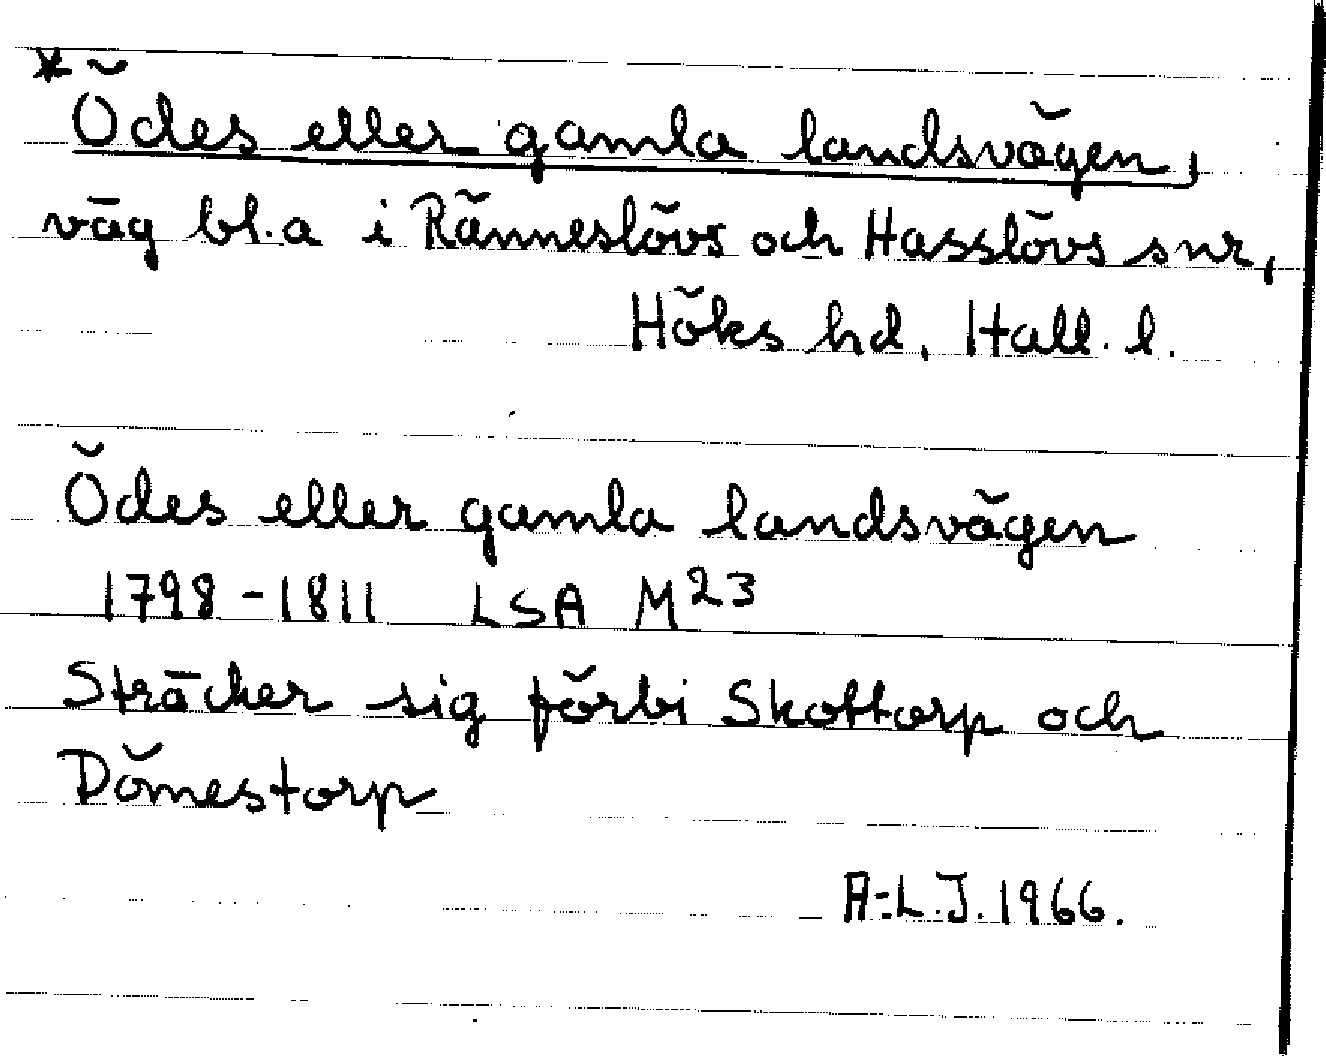 * Ödes eller gamla landsvägen,
väg bl.a i Ränneslövs och Hasslövs snr,
Höks hd, Hall. l.
Ödes eller gamla landsvägen
1798-1811 LSA M23
Sträcker sig förbi Skottorp och
Dömestorp
A-L.J. 1966.